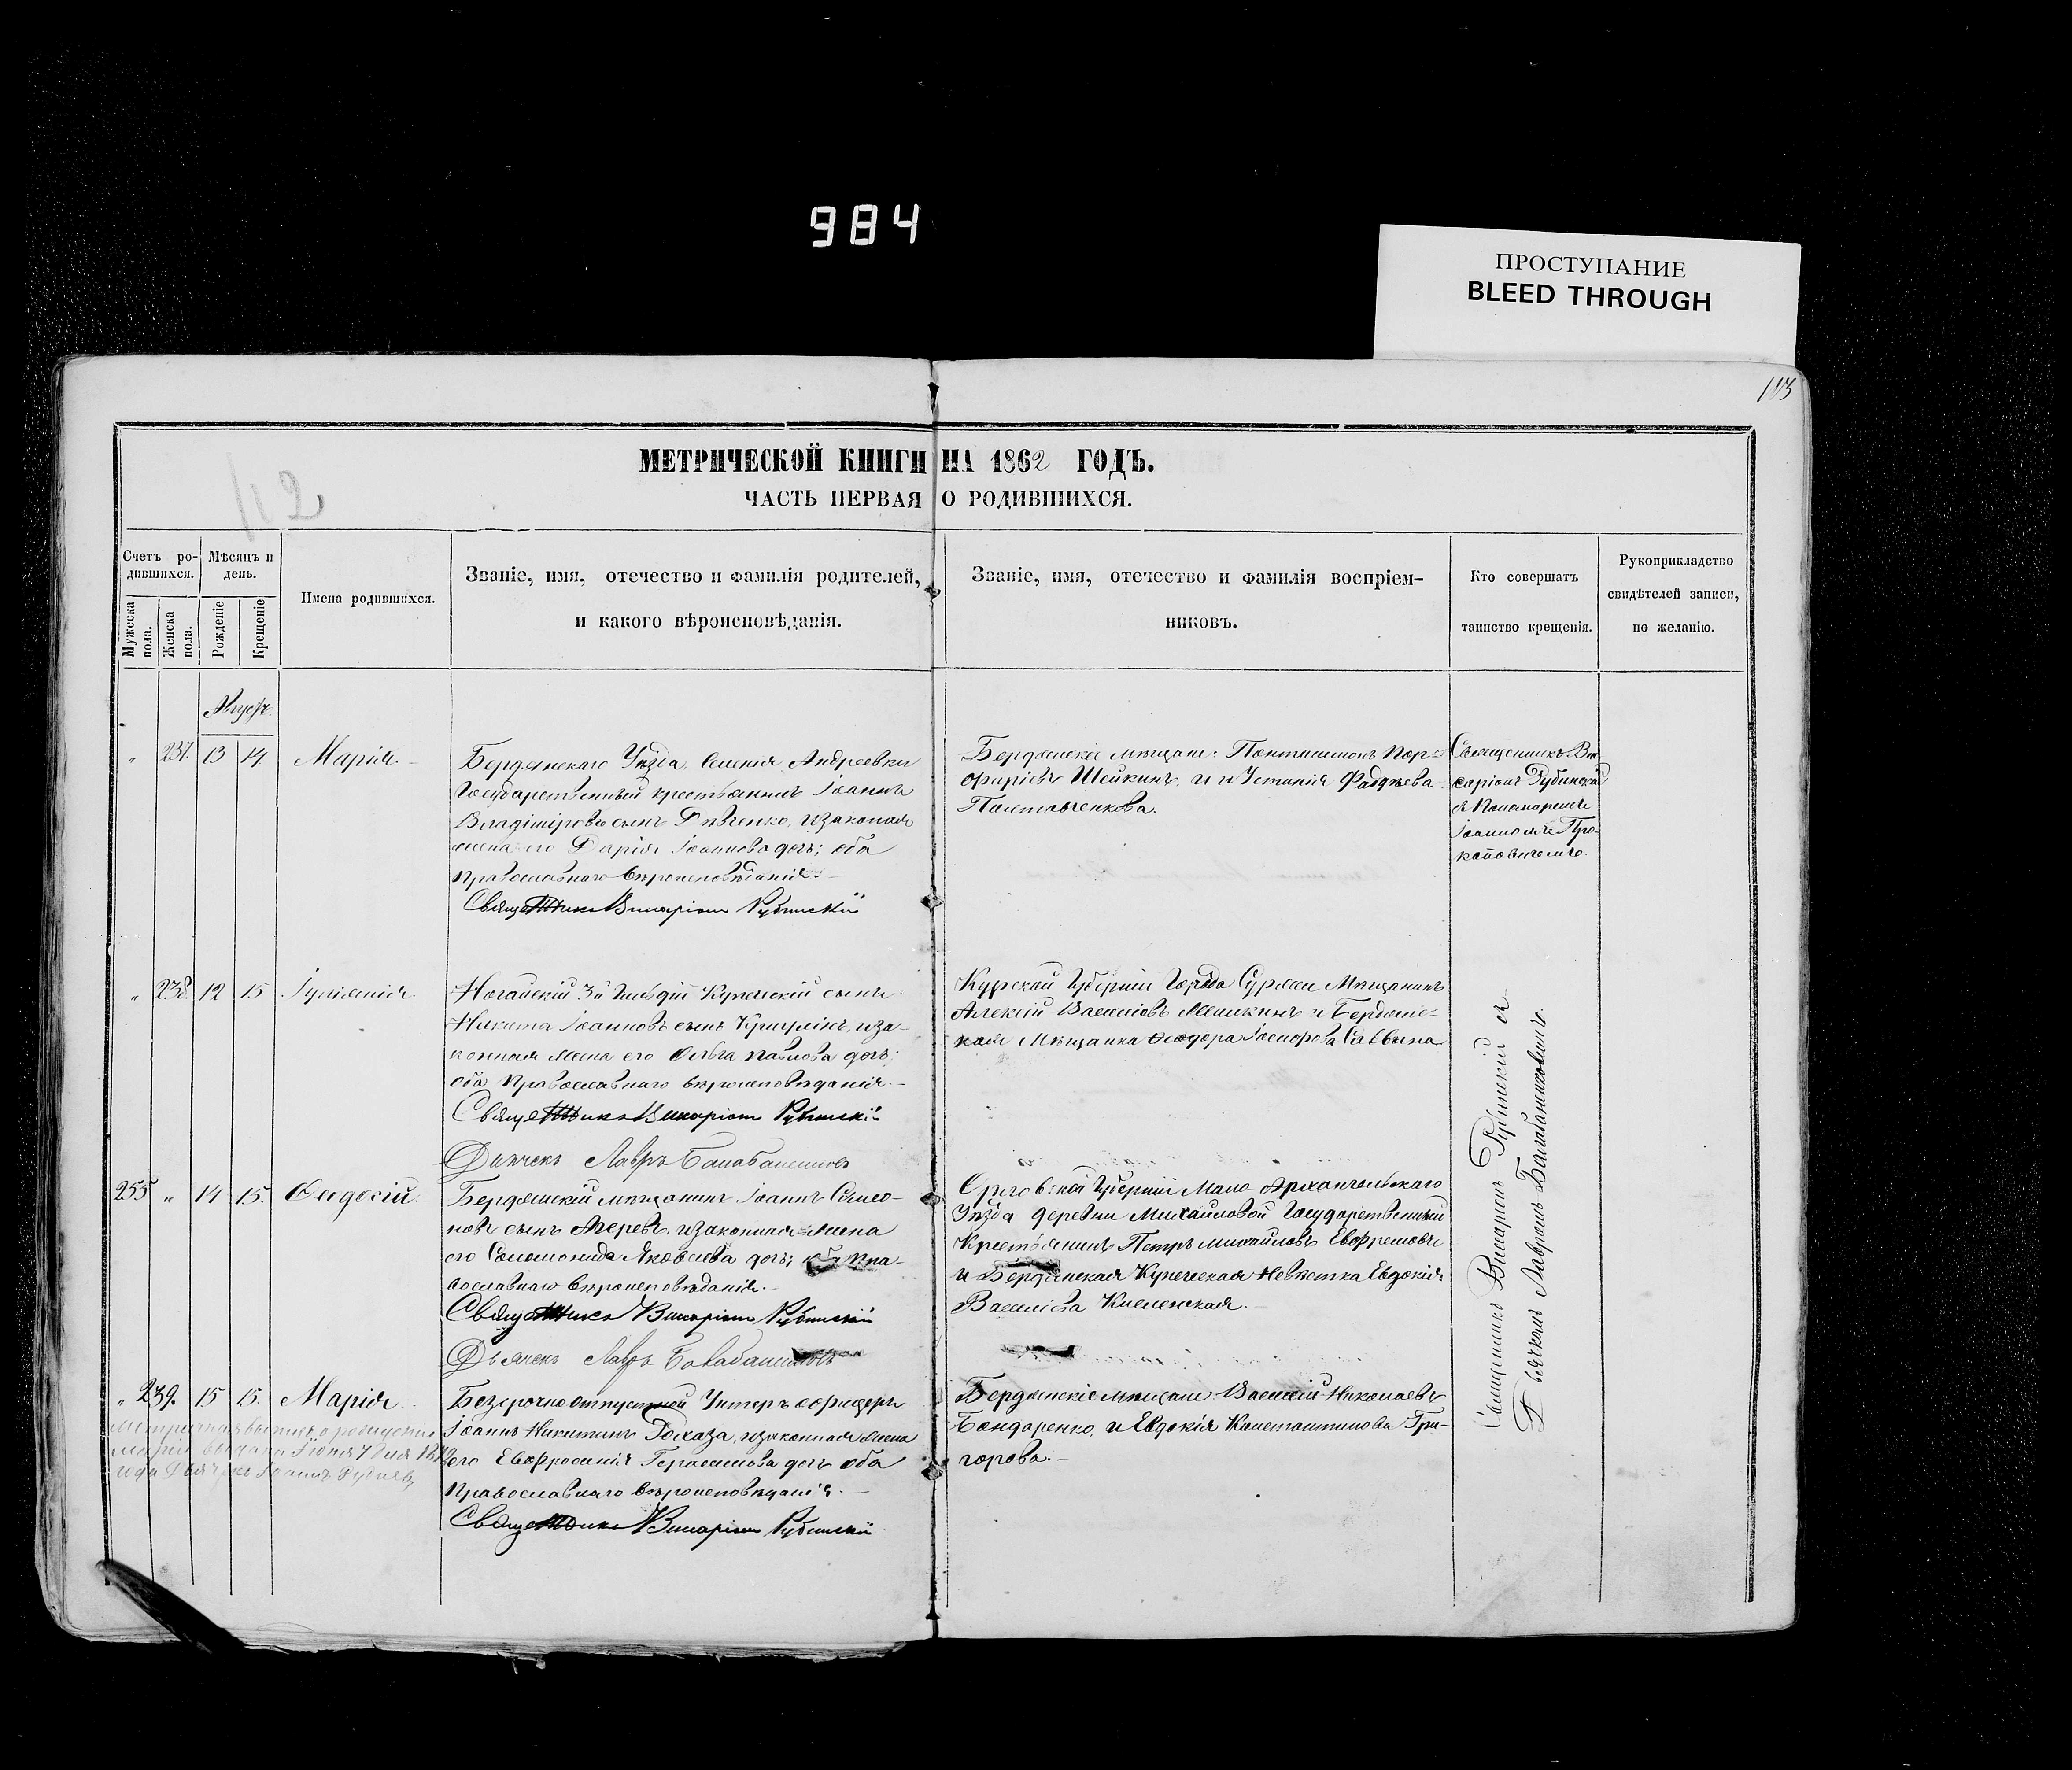 984
ПРОСТУПАНИЕ
BLEED THROUGH
113
112
МЕТРИЧЕСКОЙ КНИГИ НА 1862 ГОДЪ.
ЧАСТЬ ПЕРВАЯ О РОДИВШИХСЯ.
Счетъ ро-
дившихся.
Мужеска
пола.
Женска
пола.
Мѣсяцъ и
день.
Рожденіе
Крещеніе
Имена родившихся.
Званіе, имя, отечество и фамилія родителей,
и какого вѣроисповѣданія.
Званіе, имя, отечество и фамилія воспріем-
никовъ.
Кто совершатъ
таинство крещенія.
Рукоприкладство
свидѣтелей записи,
по желанію.
Августъ
" 237. 13 14 Марія.
Бердянскаго Уѣзда Селенія Андреевки
Государственный крестьянинъ Іоаннъ
Владиміровъ сынъ Дѣвченко, и законная
жена его Дарія Іоаннова дочь; оба
православнаго вѣроисповѣданія.
Священникъ Виссаріонъ Рубинскій
Бердянскіе мѣщане: Пантелимонъ Пор-
фиріевъ Шейкинъ, и Устинія Фаддѣева
Священникъ Ви-
саріонъ Рубинскій
съ Пономаремъ
Іоанномъ Про-
коповичемъ.
" 238. 12 15 Іуліанія
Ногайскій 3й Гильдіи Купеческій сынъ
Никита Іоанновъ сынъ и за-
конная жена его Ольга Павлова дочь;
оба Православнаго вѣроисповѣданія.
Священникъ Виссаріонъ Рубинскій
Дьячекъ Лавръ Балабаненковъ
Курской Губерніи Города Суджи Мѣщанинъ
Алексій Васильевъ Мешкинъ и Бердянс-
кая Мѣщанка Феодора Саввина
255 " 14 15. Феодосій.
Бердянскій мѣщанинъ Іоаннъ Симео-
новъ сынъ и законная жена
его Соломонида Яковлева дочь; оба Пра-
вославнаго вѣроисповѣданія.
Священникъ Виссаріонъ Рубинскій
Дьячекъ Лавръ Балабаненковъ
Орловской Губерніи Мало Архангельскаго
Уѣзда деревни Михайловой Государственный
Крестьянинъ Петръ Михайловъ Евфремовъ
и Бердянская Купеческая Невѣстка Евдокія
Васильева
Священникъ Висаріонъ Рубинскій съ
Дьячкомъ Лавромъ Балабаненковымъ.
" 239. 15 15. Марія
Безсрочноотпускной Унтеръ офицеръ
Іоаннъ Никитинъ и законная жена
его Евфросинія Герасимова дочь оба
Православнаго вѣроисповѣданія.
Священникъ Виссаріонъ Рубинскій
Бердянскіе мѣщане Василій Николаевъ
Бондаренко, и Евдокія Константинова Гри-
горова.
Метрическая выпись о рожденіи
Маріи выдана 7 дня
года Дьячекъ Іоаннъ